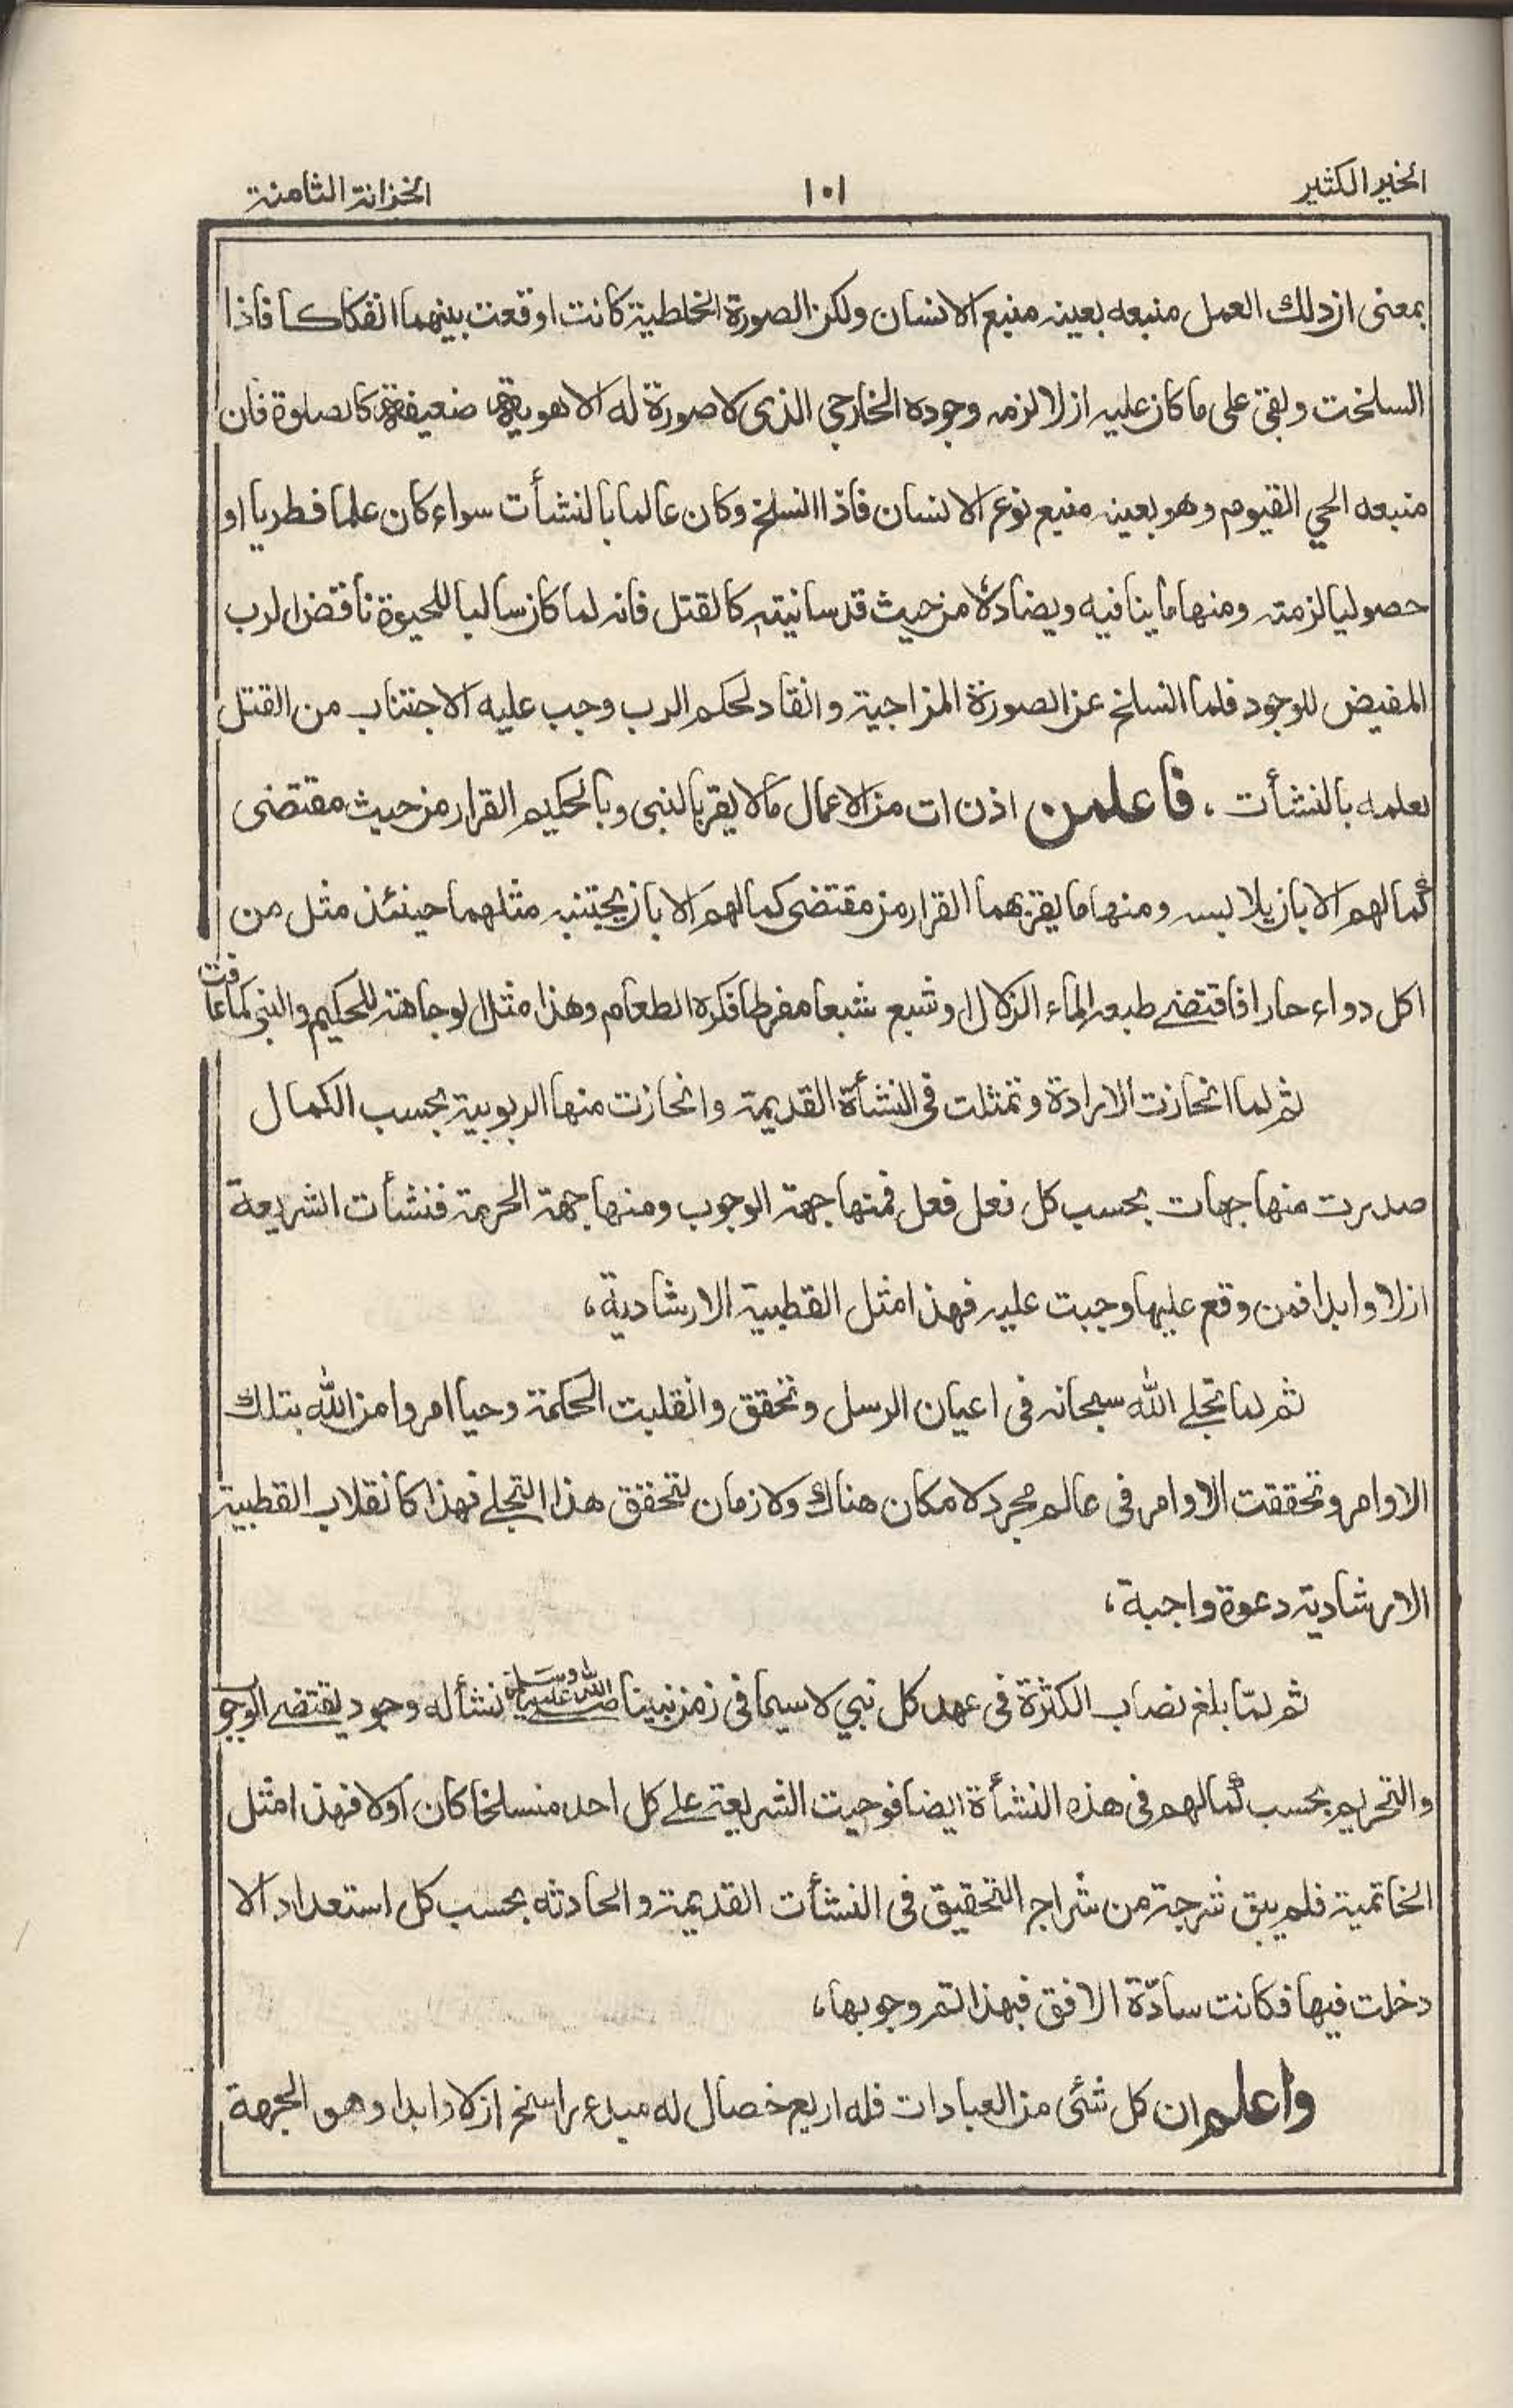 الخير الكثير
١٠١
الخزانة الثامنة
بمعنى ان ذلك العمل منبعه بعينه منبع الانسان ولكن الصورة الخلطية كانت اوقعت بينهما انفكاكا فاذا
انسلخت وبقي على ما كان عليه ازلا لزمه وجوده الخارجي الذى لا صورة له الا هوية ضعيفة كالصلوة فان
منبعه الحي القيوم وهو بعينه منبع نوع الانسان فاذا انسلخ وكان عالما بالنشأت سواء كان علما فطريا او
حصوليا لزمته ومنها ما ينافيه ويضاده من حيث قدسانيته كالقتل فانه لما كان سالبا للحيوة ناقض الرب
المفيض للوجود فلما انسلخ عن الصورة المزاجية وانقاد لحكم الرب وجب عليه الاجتناب من القتل
بعلمه بالنشأت ، فاعلمن اذن ان من الاعمال ما لا يقر بالنبي وبالحكيم القرار من حيث مقتضى
كمالهم الا بان يلابسه ومنها ما يقر بهما القرار من مقتضى كمالهم الا بان يجتنبه مثلهما حينئذ مثل من
اكل دواء حارا فاقتضى طبعه الماء الزلال او شبع شبعا مفرطا فكره الطعام وهذا مثل الوجاهة للحكيم والنبي كما عافت
ثم لما انحازت الارادة وتمثلت فى النشأة القديمة وانحازت منها الربوبية بحسب الكمال
صدرت منها جهات بحسب كل فعل فعل فمنها جهة الوجوب ومنها جهة الحرمة فنشأت الشريعة
ازلا وابدا فمن وقع عليها وجبت عليه فهذا مثل القطبية الارشادية،
ثم لما تجلى الله سبحانه فى اعيان الرسل وتحقق وانقلبت الحكمة وحيا امروا من الله بتلك
الاوامر وتحققت الاوامر فى عالم مجرد لا مكان هناك ولا زمان لتحقق هذا التجلي فهذا كانقلاب القطبية
الارشادية دعوة واجبة،
ثم لمّا بلغ نصاب الكثرة فى عهد كل نبي لاسيما فى زمن نبينا صلى الله عليه وسلم نشأ له وجود يقتضى الوجوب
والتحريم بحسب كمالهم فى هذه النشأة ايضا فوجبت الشريعة على كل احد منسلخا كان اولا فهذا مثل
الخاتمية فلم يبق شرجة من شراج التحقيق فى النشأت القديمة والحادثه بحسب كل استعداد الا
دخلت فيها فكانت سادّة الافق فبهذا تم وجوبها،
واعلم ان كل شئى من العبادات فله اربع خصال له مبدء راسخ ازلا وابدا وهو الجهة